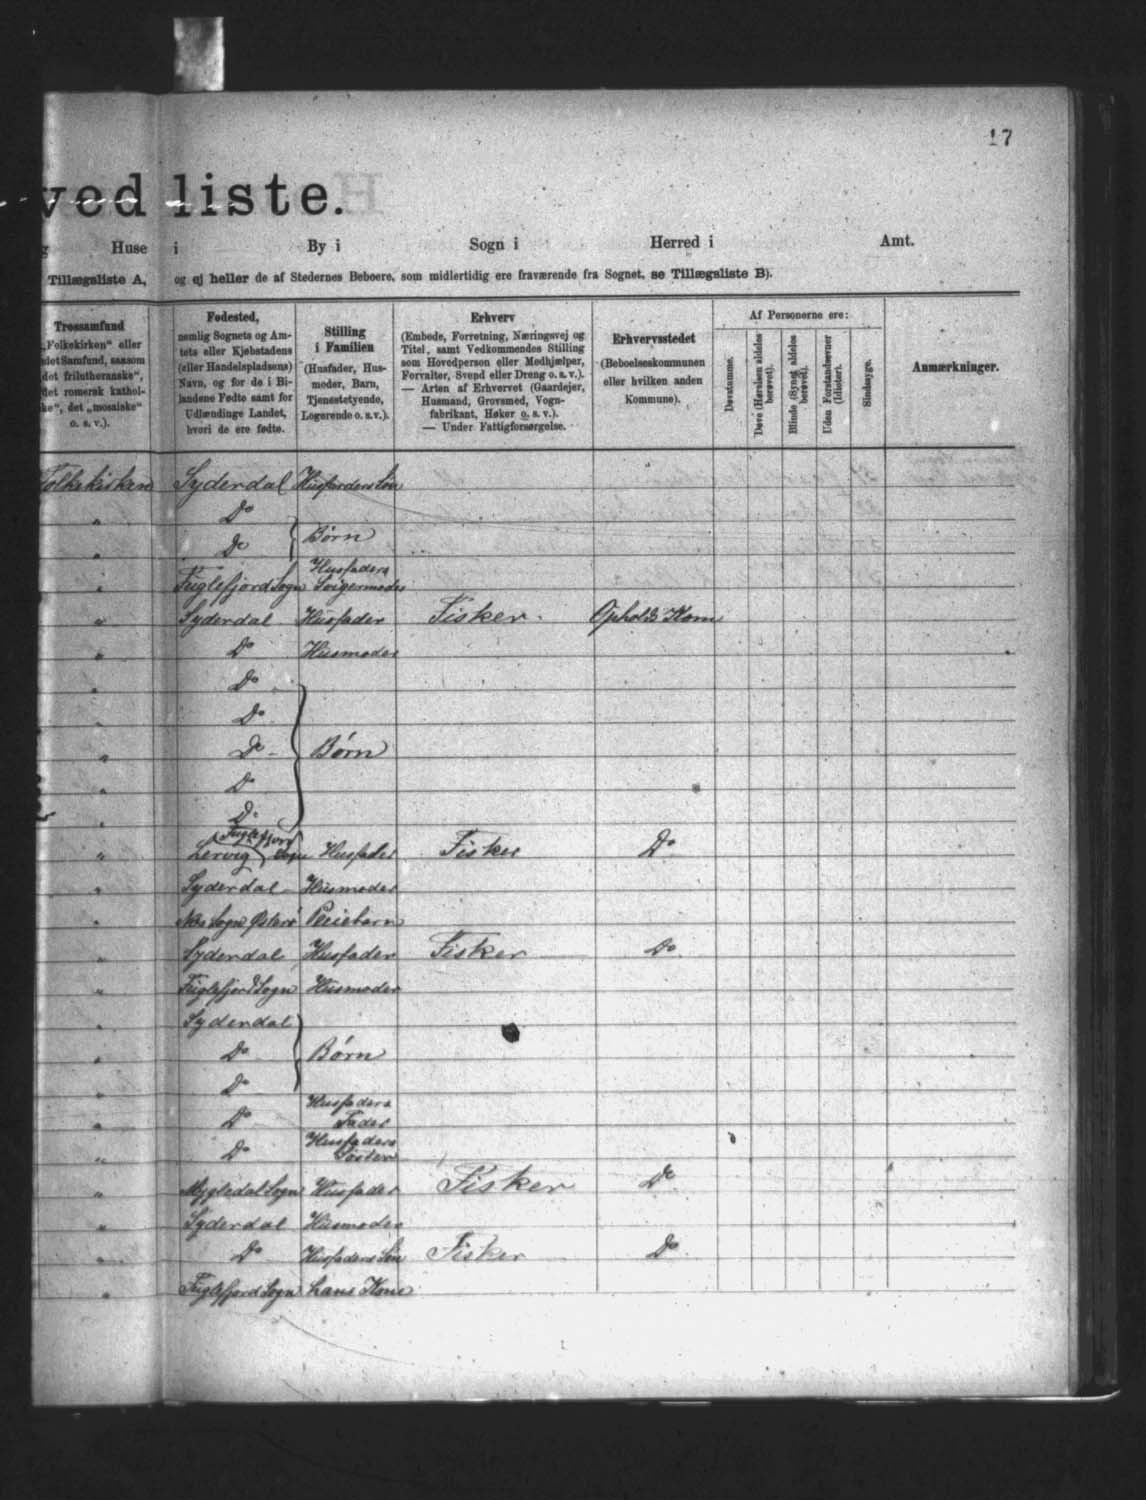 17
ved liste.
Huse i By i Sogn i Herred i Amt.
Tillægsliste A, og ej heller de af Stedernes Beboere, som midlertidig ere fraværende fra Sognet, se Tillægsliste B).
Trossamfund
„Folkekirken“ eller
det Samfund, saasom
det frilutheranske“,
det romersk kathol-
ke“, det „mosaiske“
o. s. v.).
Fødested,
nemlig Sognets og Am-
tets eller Kjøbstadens
(eller Handelspladsens)
Navn, og for de i Bi-
landene Fødte samt for
Udlændinge Landet,
hvori de ere fødte.
Stilling
i Familien
(Husfader, Hus-
moder, Barn,
Tjenestetyende,
Logerende o. s. v.).
Erhverv
(Embede, Forretning, Næringsvej og
Titel, samt Vedkommendes Stilling
som Hovedperson eller Medhjælper,
Forvalter, Svend eller Dreng o. s. v.).
— Arten af Erhvervet (Gaardejer,
Husmand, Grovsmed, Vogn-
fabrikant, Høker o. s. v.).
— Under Fattigforsørgelse.
Erhvervsstedet
(Beboelseskommunen
eller hvilken anden
Kommune).
Af Personerne ere:
Døvstumme.
Døve (Hørelsen aldeles
berøvet).
Blinde (Synet aldeles
berøvet).
Uden Forstandsevner
(Idioter).
Sindssyge.
Anmærkninger.
Folkekirken Syderdal Husfaders Søn
" Do
" Do Børn
" Fuglefjord Sogn Husfaders Svigermoder
" Syderdal Husfader Fisker Opholds Kom
" Do Husmoder
" Do
" Do
" Do Børn
" Do
" Do
" Lervig Fuglefjord Sogn Husfader Fisker Do
" Syderdal Husmoder
" Nes Sogn Østerø Pleiebarn
" Syderdal Husfader Fisker Do
" Fuglefjord Sogn Husmoder
" Syderdal
" Do Børn
" Do
" Do Husfaders Fader
" Do Husfaders Søster
" Mygledal Sogn Husfader Fisker Do
" Syderdal Husmoder
" Do Husfaders Søn Fisker Do
" Fuglefjord Sogn hans Kone